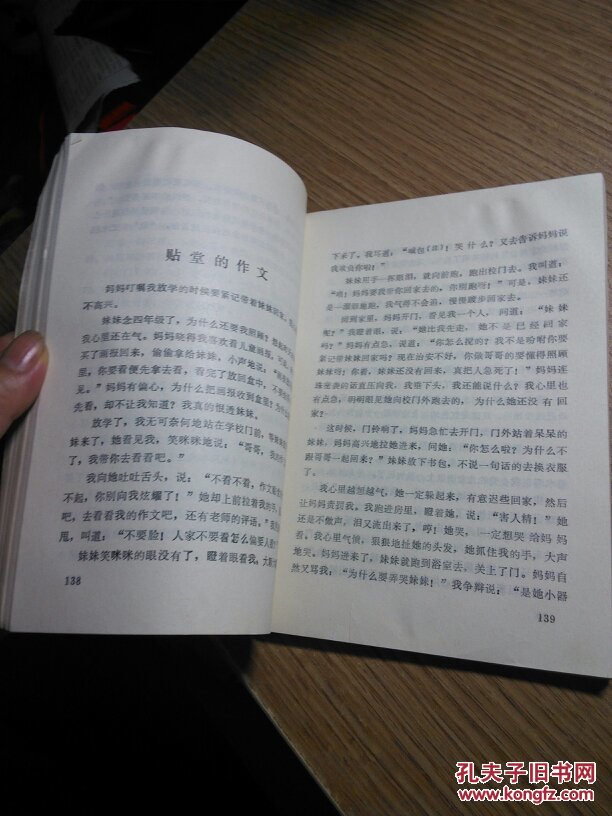 贴堂的作文
妈妈叮嘱我放学的时候要紧记带着妹妹回家,我
不高兴。
妹妹念四年级了,为什么还要我照顾?想起昨天
我心里还在气。妈妈晓得我喜欢看儿童画报,
买了画报回来,偷偷拿给妹妹,小声地说:“画报
里,你要看便先拿去看,看完了放回盒中,不要
。”妈妈有偏心,为什么把画报收到盒里?为什么
先看,却不让我知道?我真的恨透妹妹。
放学了,我无可奈何地站在学校门前,等妹妹
妹来了,她看见我,笑咪咪地说:“哥哥,我的
了,我带你去看看吧。”
我向她吐吐舌头,说:“不看不看,作文贴
不起,你别向我炫耀了!”她却上前拉着我的手,
吧,去看看我的作文吧,还有老师的评语。”我
甩,叫道:“不要脸!人家不要看怎么偏要人看
妹妹笑咪咪的眼没有了,瞪着眼看我,大颗
138
下来了。我骂道:“喊包(注)!哭什么?又去告诉妈妈说
我欺负你啦!”
妹妹用手一抹眼泪,就向前跑,跑出校门去。我叫道:
“喂!妈妈要我带你回家去的,你别跑呀!”可是,妹妹还
是一溜烟地跑,我气得不会前,慢慢踱步回家去。
回到家里,妈妈开门,看见我一个人,问道:“妹妹
呢?”我瞪着眼,说:“她比我先走,她不是已经回家
吗?”妈妈有点急,说:“你怎么搅的?我不是吩咐你要
紧记带妹妹回家吗?现在治安不好,你做哥哥的要懂得照顾
妹妹呀!你看,妹妹还没有回来,真把人急死了!”妈妈连
珠密炮的话直压向我,我垂下头,我还能说什么?我心里
也有点急,明明眼见她向校门外跑去的,为什么她还没有回
家?
这时候,门铃响了,妈妈急忙去开门,门外站着呆呆的
妹妹,妈妈高兴地拉她进来,问她:“你怎么啦?为什么不
跟哥哥一起回来?”妹妹放下书包,不说一句话的去换衣服
了。
我心里越加越气,她一定躲起来,有意迟些回家,然后
让妈妈责罚我。我跑进房里,蹬着她说:“害人精!”她
还是不做声,泪又流出来了,哼!她哭,一定想哭给妈妈
看。我心里气愤,狠狠地扯她的头发,她抓住我的手,大声
地哭。妈妈进来了,妹妹就跑到浴室去,关上了门。妈妈自
然又骂我:“为什么要弄哭妹妹!”我争辩说:“是她小器
139
孔夫子旧书网
www.kongfz.com